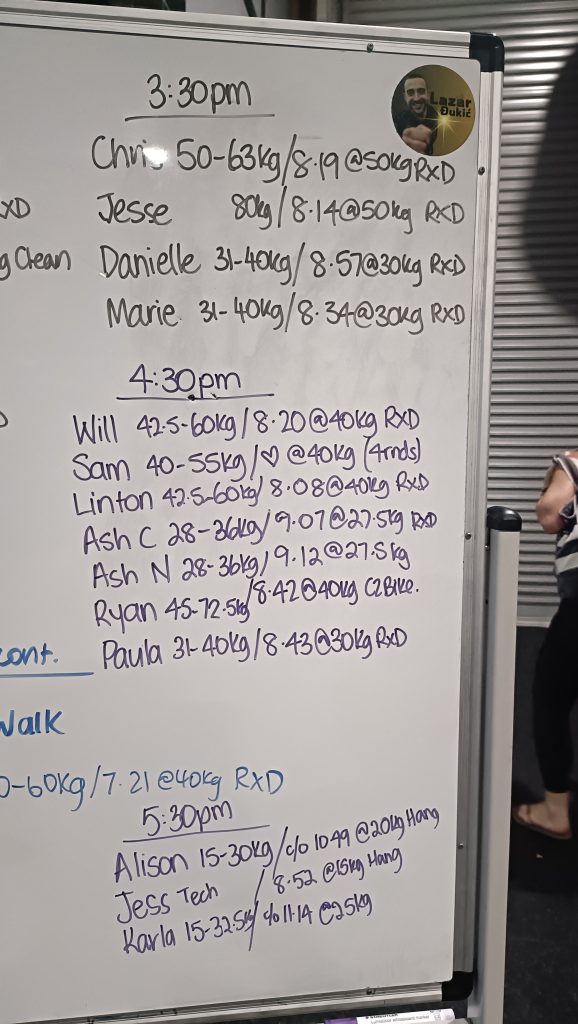 3:30pm
Lazar
Đukić
Chris 50-63kg/8.19@50kg RXD
XD
Jesse 80kg/8.14@50kg RXD
g Clean
Danielle 31-40kg/8.57@30kg RXD
Marie 31-40kg/8.34@30kg RXD
4:30pm
Will 42.5-60kg/8.20@40kg RXD
Sam 40-55kg/♡ @40kg (4rnds)
Linton 42.5-60kg/8.08@40kg RXD
Ash C 28-36kg/9.07@27.5kg RXD
Ash N 28-36kg/9.12@27.5kg
Ryan 45-72.5kg/8.42@40kg C2Bike.
cont.
Paula 31-40kg/8.43@30kg RXD
Walk
0-60kg/7.21@40kg RXD
5:30pm
Alison 15-30kg/c/o 10.49 @20kg Hang
Jess Tech / 8.52 @15kg Hang
Karla 15-32.5kg/c/o 11.14 @25kg